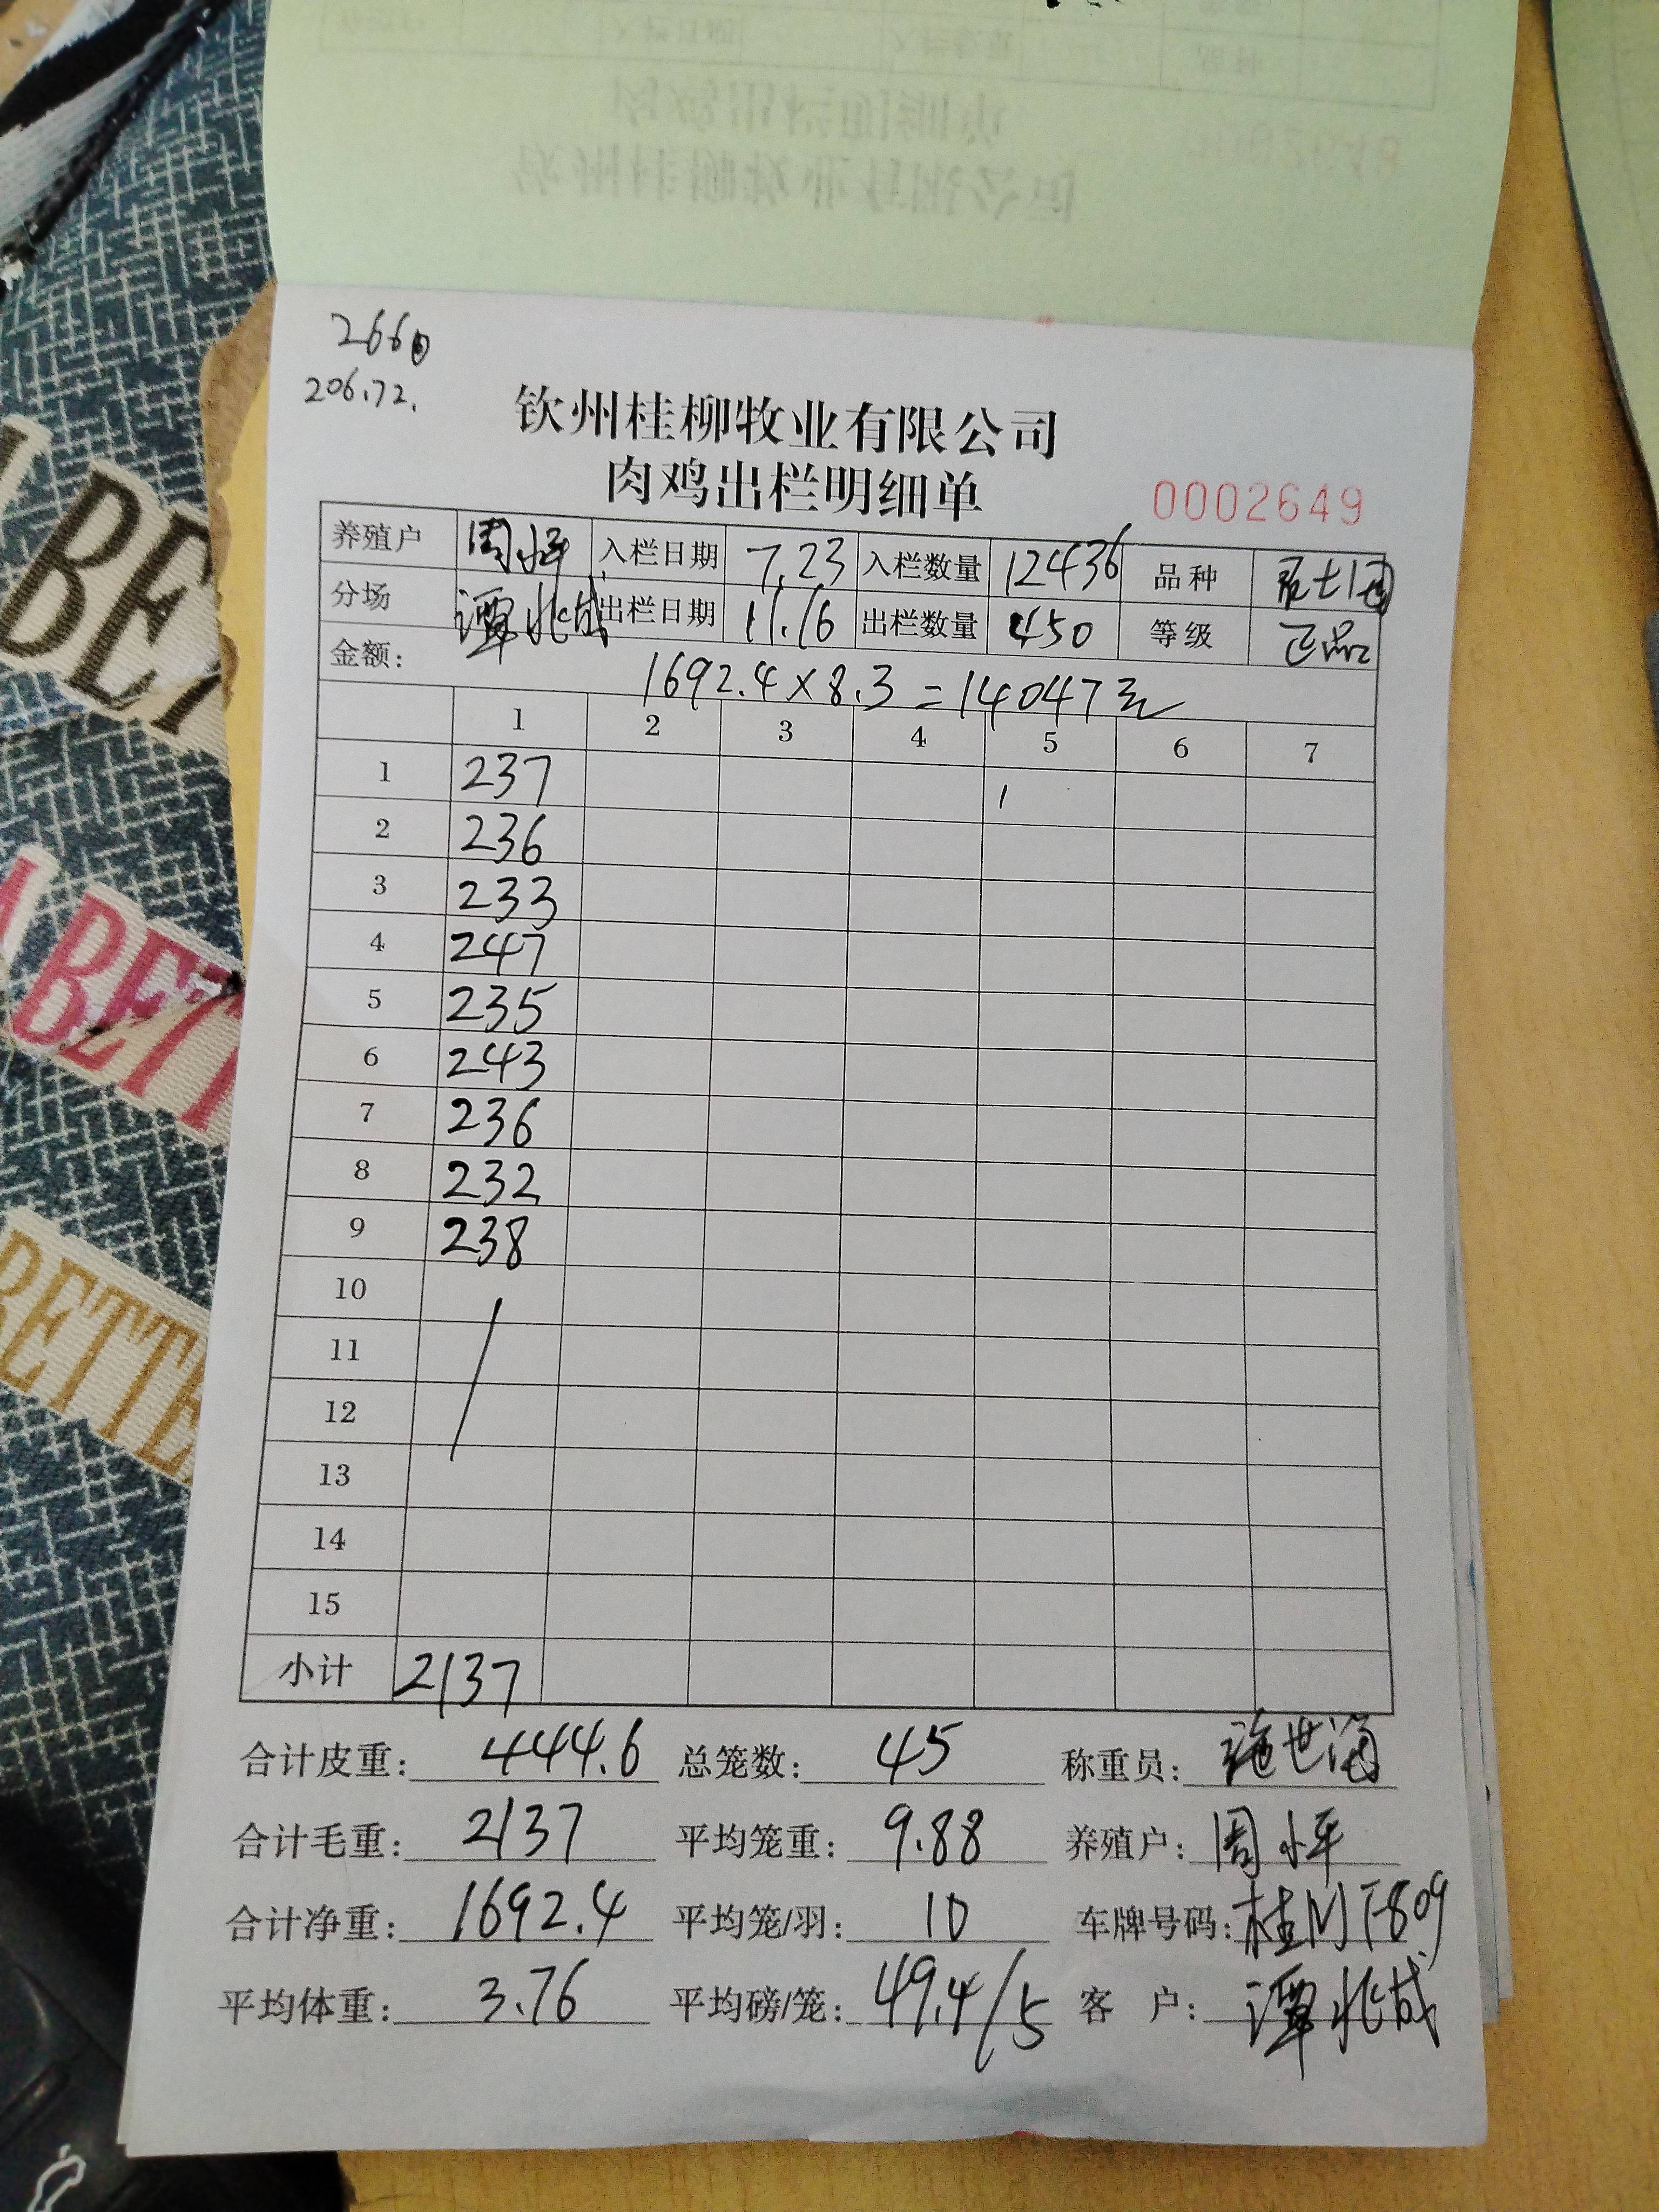 2660
206.72.
钦州桂柳牧业有限公司
肉鸡出栏明细单
0002649
养殖户 周小平 入栏日期 7.23 入栏数量 12436 品种
分场 谭兆成 出栏日期 11.16 出栏数量 450 等级 正品
金额: 1692.4×8.3=14047元
1 2 3 4 5 6 7
1 237
2 236
3 233
4 247
5 235
6 243
7 236
8 232
9 238
10
11
12
13
14
15
小计 2137
合计皮重: 444.6 总笼数: 45 称重员: 施世海
合计毛重: 2137 平均笼重: 9.88 养殖户: 周小平
合计净重: 1692.4 平均笼/羽: 10 车牌号码:
平均体重: 3.76 平均磅/笼: 49.4/5 客 户: 谭兆成
BETTE
BETT
BETTE